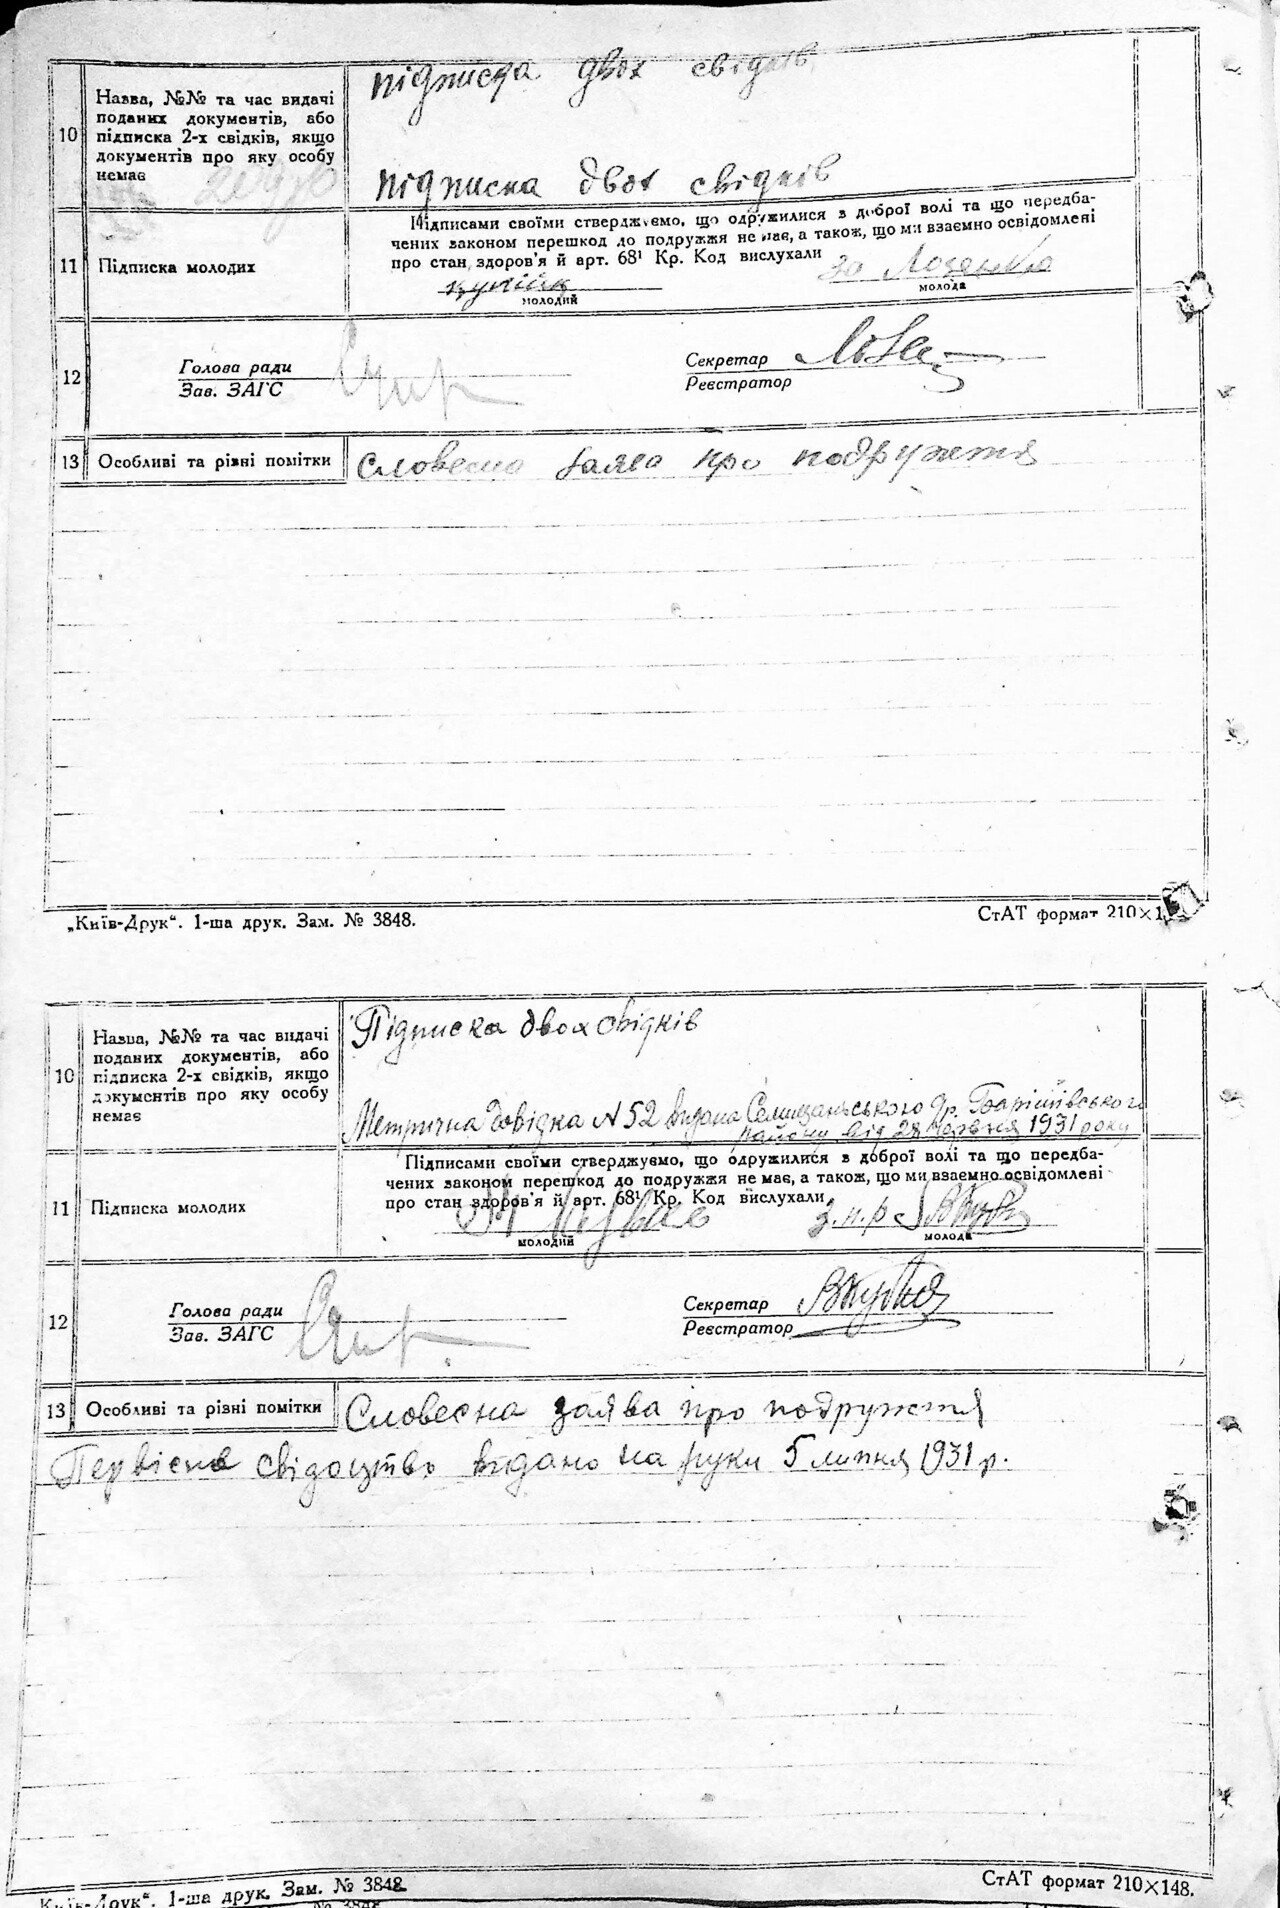 10
Назва, №№ та час видачі
поданих документів, або
підписка 2-х свідків, якщо
документів про яку особу
немає
підписка двох свідків
підписка двох свідків
11
Підписка молодих
Підписами своїми стверджуємо, що одружилися з доброї волі та що передба-
чених законом перешкод до подружжя не має, а також, що ми взаємно освідомлені
про стан здоров'я й арт. 68¹ Кр. Код вислухали
за Лозенко
молодий
молода
12
Голова ради
Зав. ЗАГС
Секретар
Реєстратор
13
Особливі та різні помітки
Словесна заява про подружжя
„Київ-Друк“. 1-ша друк. Зам. № 3848.
СтАТ формат 210×1
10
Назва, №№ та час видачі
поданих документів, або
підписка 2-х свідків, якщо
документів про яку особу
немає
Підписка двох свідків
Метрична довідка N 52 видана
району від 28 червня 1931 року
11
Підписка молодих
Підписами своїми стверджуємо, що одружилися з доброї волі та що передба-
чених законом перешкод до подружжя не має, а також, що ми взаємно освідомлені
про стан здоров'я й арт. 68¹ Кр. Код вислухали
з.н.р
молодий
молода
12
Голова ради
Зав. ЗАГС
Секретар
Реєстратор
13
Особливі та різні помітки
Словесна заява про подружжя
Первісне свідоцтво видано на руки 5 липня 1931 р.
Київ-Друк“. 1-ша друк. Зам. № 3848
СтАТ формат 210×148.
№ 3848